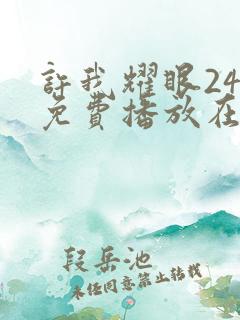 許我耀眼24
免費播放在
段岳池
未经同意禁止转载